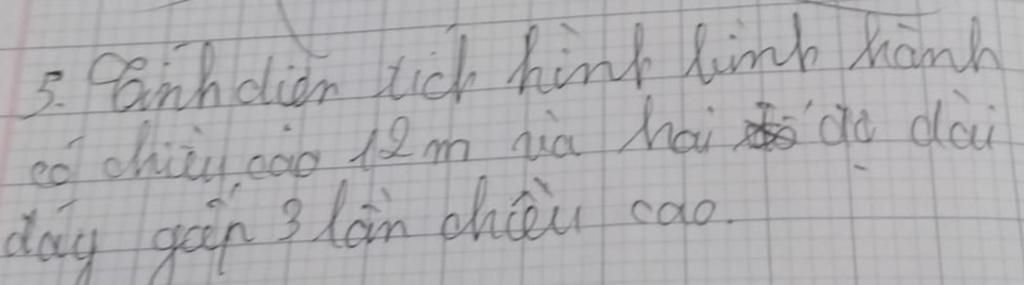 5. Tính diện tích hình bình hành
có chiều cao 12m và hai độ dài
đáy gấp 3 lần chiều cao.